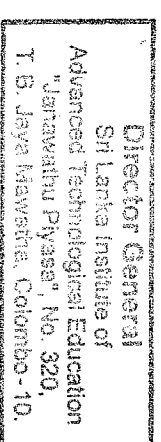 Director General
Sri Lanka Institute of
Advanced Technological Education
"Janawathu Piyasa", No. 320,
T. B Jaya Mawatha, Colombo - 10.